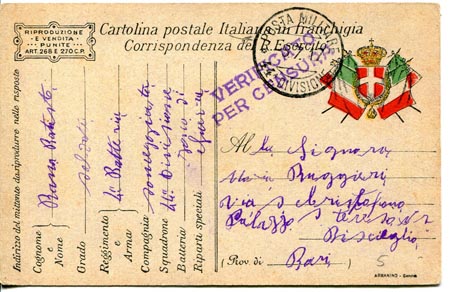 RIPRODUZIONE
E VENDITA
PUNITE
ART. 268 E 270 C.P.
Cartolina postale Italiana in franchigia
Corrispondenza del R. Esercito
POSTA MILITARE
DIVISIONE
VERIFICATO
PER CENSURA
Indirizzo del mittente da riprodurre nelle risposte
Cognome e Nome
Grado
soldato
Reggimento e Arma
4a Batteria
Compagnia
Squadrone
44a Divisione
Batteria
Zona di
Riparti speciali
guerra
Alla Signora
Maria Ruggieri
Via S. Cristofano
Palazzo
Bisceglie
(Prov. di Bari)
5